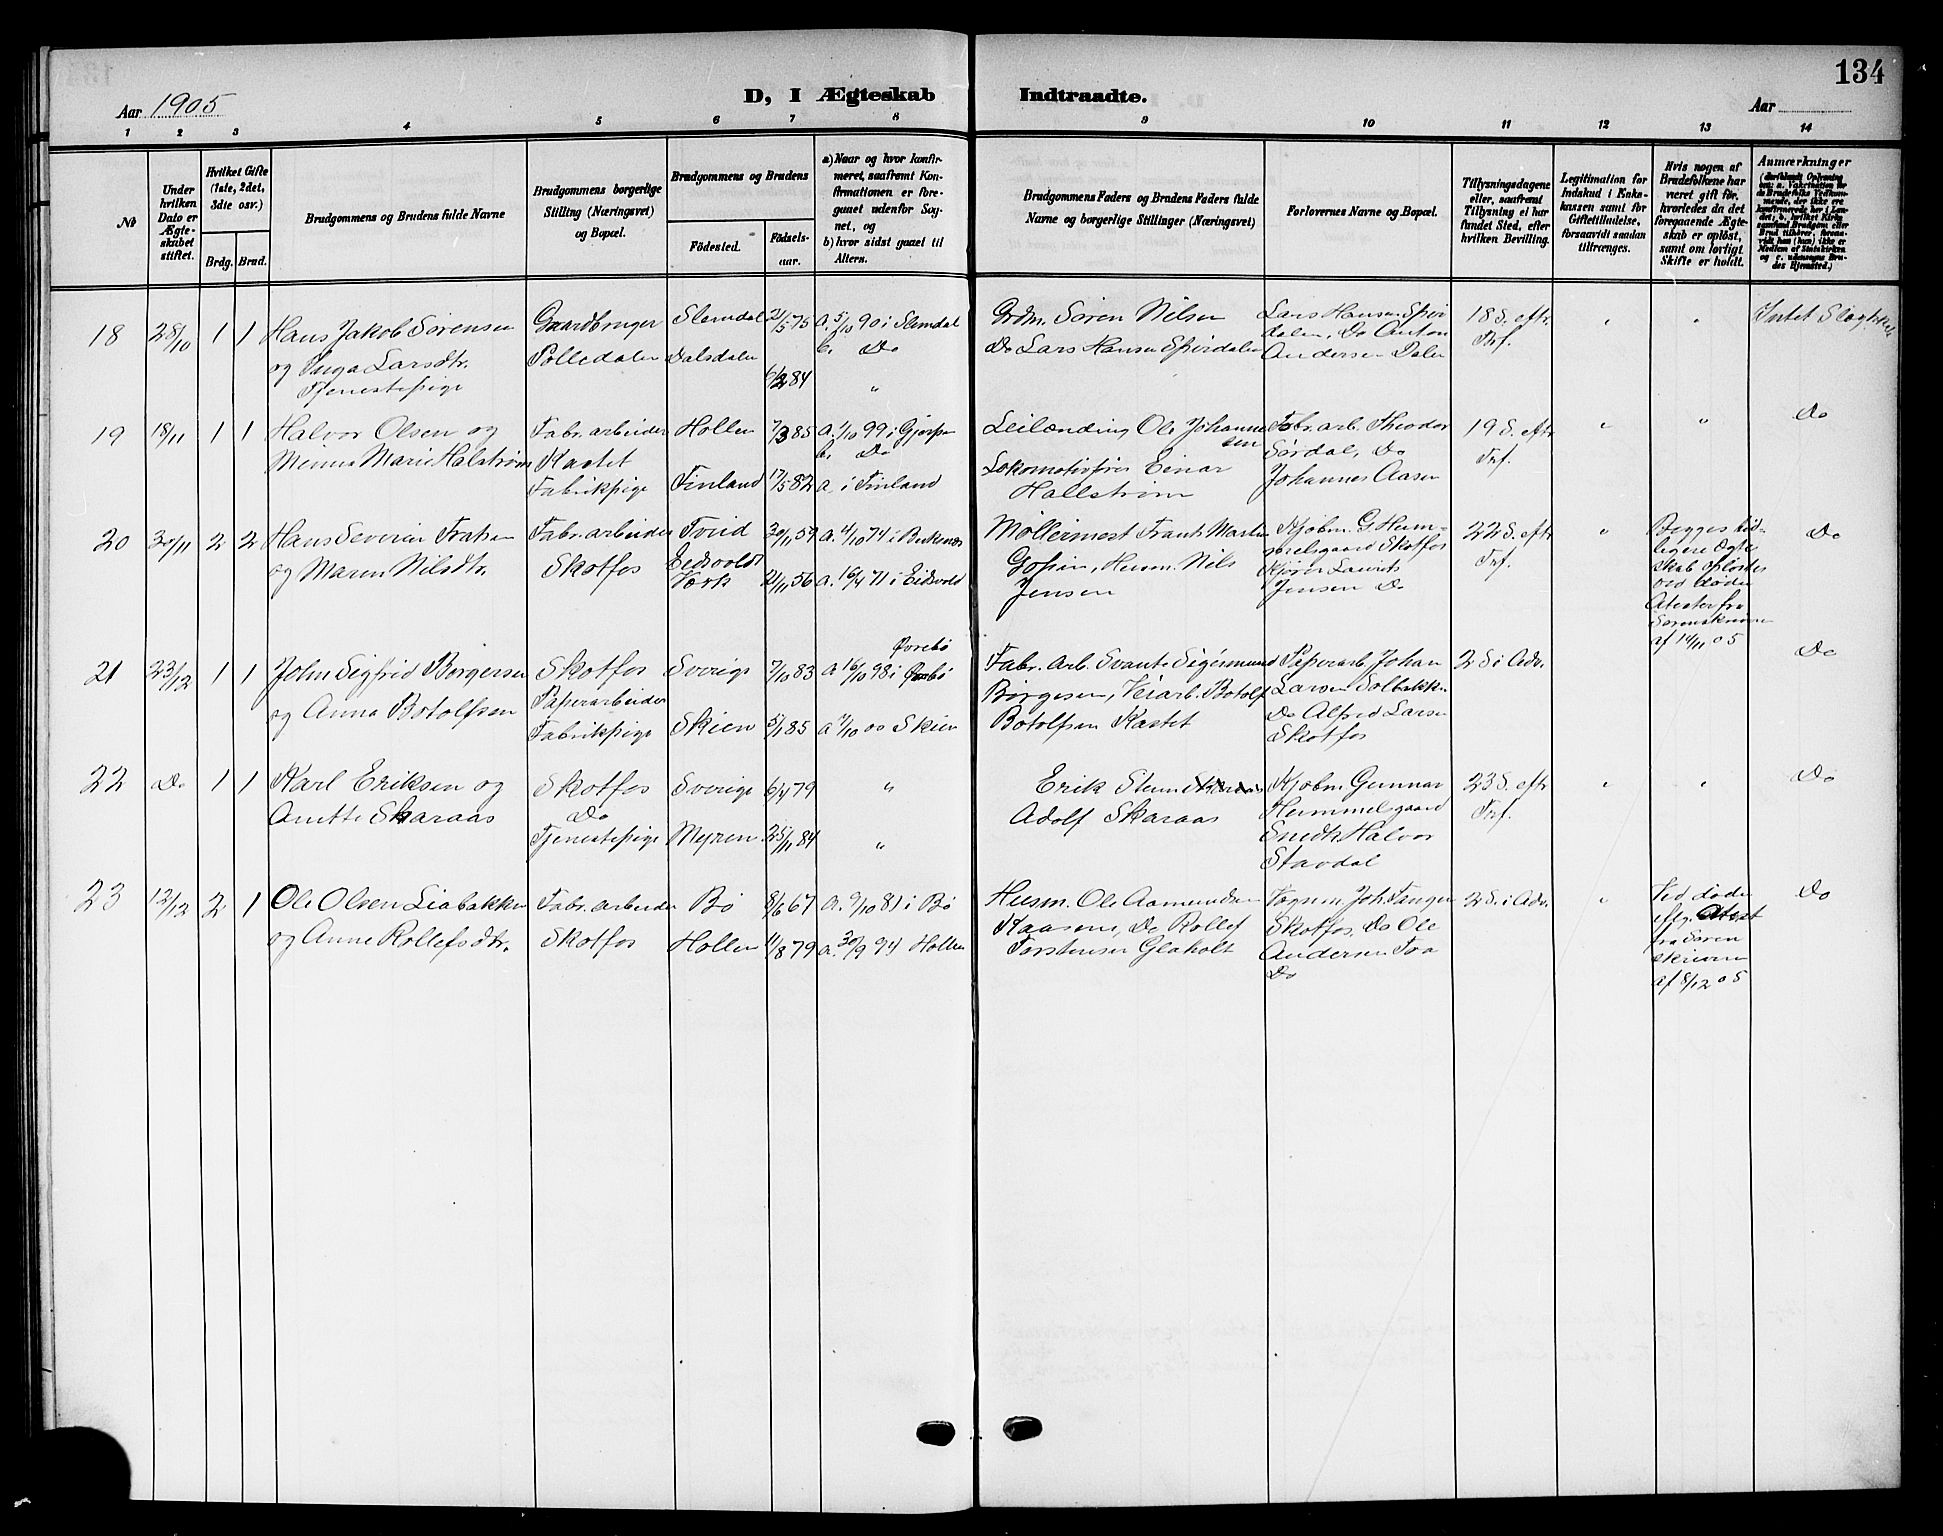 134
Aar 1905
D, I Ægteskab Indtraadte.
Aar
1 2 3 4 5 6 7 8 9 10 11 12 13 14
No
Under hvilken Dato er Ægteskabet stiftet.
Hvilket Gifte (1ste, 2det, 3die osv.)
Brdg. Brud.
Brudgommens og Brudens fulde Navne
Brudgommens borgerlige Stilling (Næringsvei) og Bopæl.
Brudgommens og Brudens
Födested.
Födselsaar.
a) Naar og hvor konfirmeret, saafremt Konfirmationen er foregaaet udenfor Sognet, og
b) hvor sidst gaaet til Alters.
Brudgommens Faders og Brudens Faders fulde Navne og borgerlige Stillinger (Næringsvei)
Forlovernes Navne og Bopæl.
Tillysningsdagene eller, saafremt Tillysning ei har fundet Sted, efter hvilken Bevilling.
Legitimation for Indskud i Enkekassen samt for Giftetilladelse, forsaavidt saadan tiltrænges.
Hvis nogen af Brudefolkene har været gift før, hvorledes da det foregaaende Ægteskab er opløst, samt om lovligt Skifte er holdt.
Anmærkninger
18 28/10 1 1
Hans Jakob Sørensen
og Inga Larsdtr.
Tjenestepige
Gaardbruger
Polledalen
Slemdal
Dalsdalen
21/5 75
6/2 84
a. 5/10 90 i Slemdal
b. Do
"
Grdm. Søren Nilsen
Do Lars Hansen Spirdalen
Lars Hansen Spir
dalen, Do Anton
Andersen Dalen
18 S. eftr.
Tref.
"
"
Intet Slægtskab
19 18/11 1 1
Halvor Olsen og
Menna Marie Halstrøm
Fabr. arbeider
Kastet
Fabrikpige
Hollen
Finland
7/3 85
17/5 82
a. 1/10 99 i Gjerpen
b. Do
a. i Finland
Leilænding Ole Johanne
sen
Lokomotivfører Einar
Hallstrøm
Fabr. arb. Theodor
Sørdal, Do
Johannes Aasen
19 S. eftr
Tref.
"
"
Do
20 30/11 2 2
Hans Severin
og Maren Nilsdtr.
Fabr. arbeider
Skotfos
Tvid
Eidsvolds
Værk
30/11 59
21/11 56
a. 4/10 74 i
a. 16/4 71 i Eidsvold
Møllemest Frants Martin
Husm. Nils
Jensen
Kjøbm. G. Hem-
melsgaard Skotfos
Kjører Laurits
Jensen Do
22 S. eftr
Tref.
"
Begges tid-
ligere Ægte
skab opløstes
ved døden
Atester fra
Sorenskriveren
af 14/11 05
Do
21 23/12 1 1
John Sigfrid Børgersen
og Anna Botolfsen
Skotfos
Papirarbeider
Fabrikpige
Sverige
Skien
7/10 83
5/1 85
Øvrebø
a 16/10 98 i
a 7/10 00 Skien
Fabr. arb. Svante Sigismund
Børgesen, Veiarb. Botolf
Botolfsen Kastet
Papirarb. Johan
Larsen Solbakken
Do Alfred Larsen
Skotfos
2 S i Adv.
Do
22 Do 1 1
Karl Eriksen og
Anette Skaraas
Skotfos
Do
Tjenestepige
Sverige
Myren
6/4 79
25/11 84
"
"
Erik Stenm
Adolf Skaraas
Kjøbm. Gunnar
Hemmelsgaard
Smedk Halvor
Stavdal
23 S. eftr
Tref.
"
"
Do
23 12/12 2 1
Ole Olsen Liabakken
og Anne Rollefsdtr.
Fabr. arbeider
Skotfos
Bø
Hollen
8/6 67
11/8 79
a. 9/10 81 i Bø
a. 30/9 94 Hollen
Husm. Ole Aamundsen
Kaasene, Do Rollef
Torstensen Glaholt
Vognm. Joh. Tangen
Skotfos. Do Ole
Andersen Foa
Do
2 S. i Adv.
"
Ved døden
eflg. Atest
fra Soren
skriveren
af 8/12 05
Do